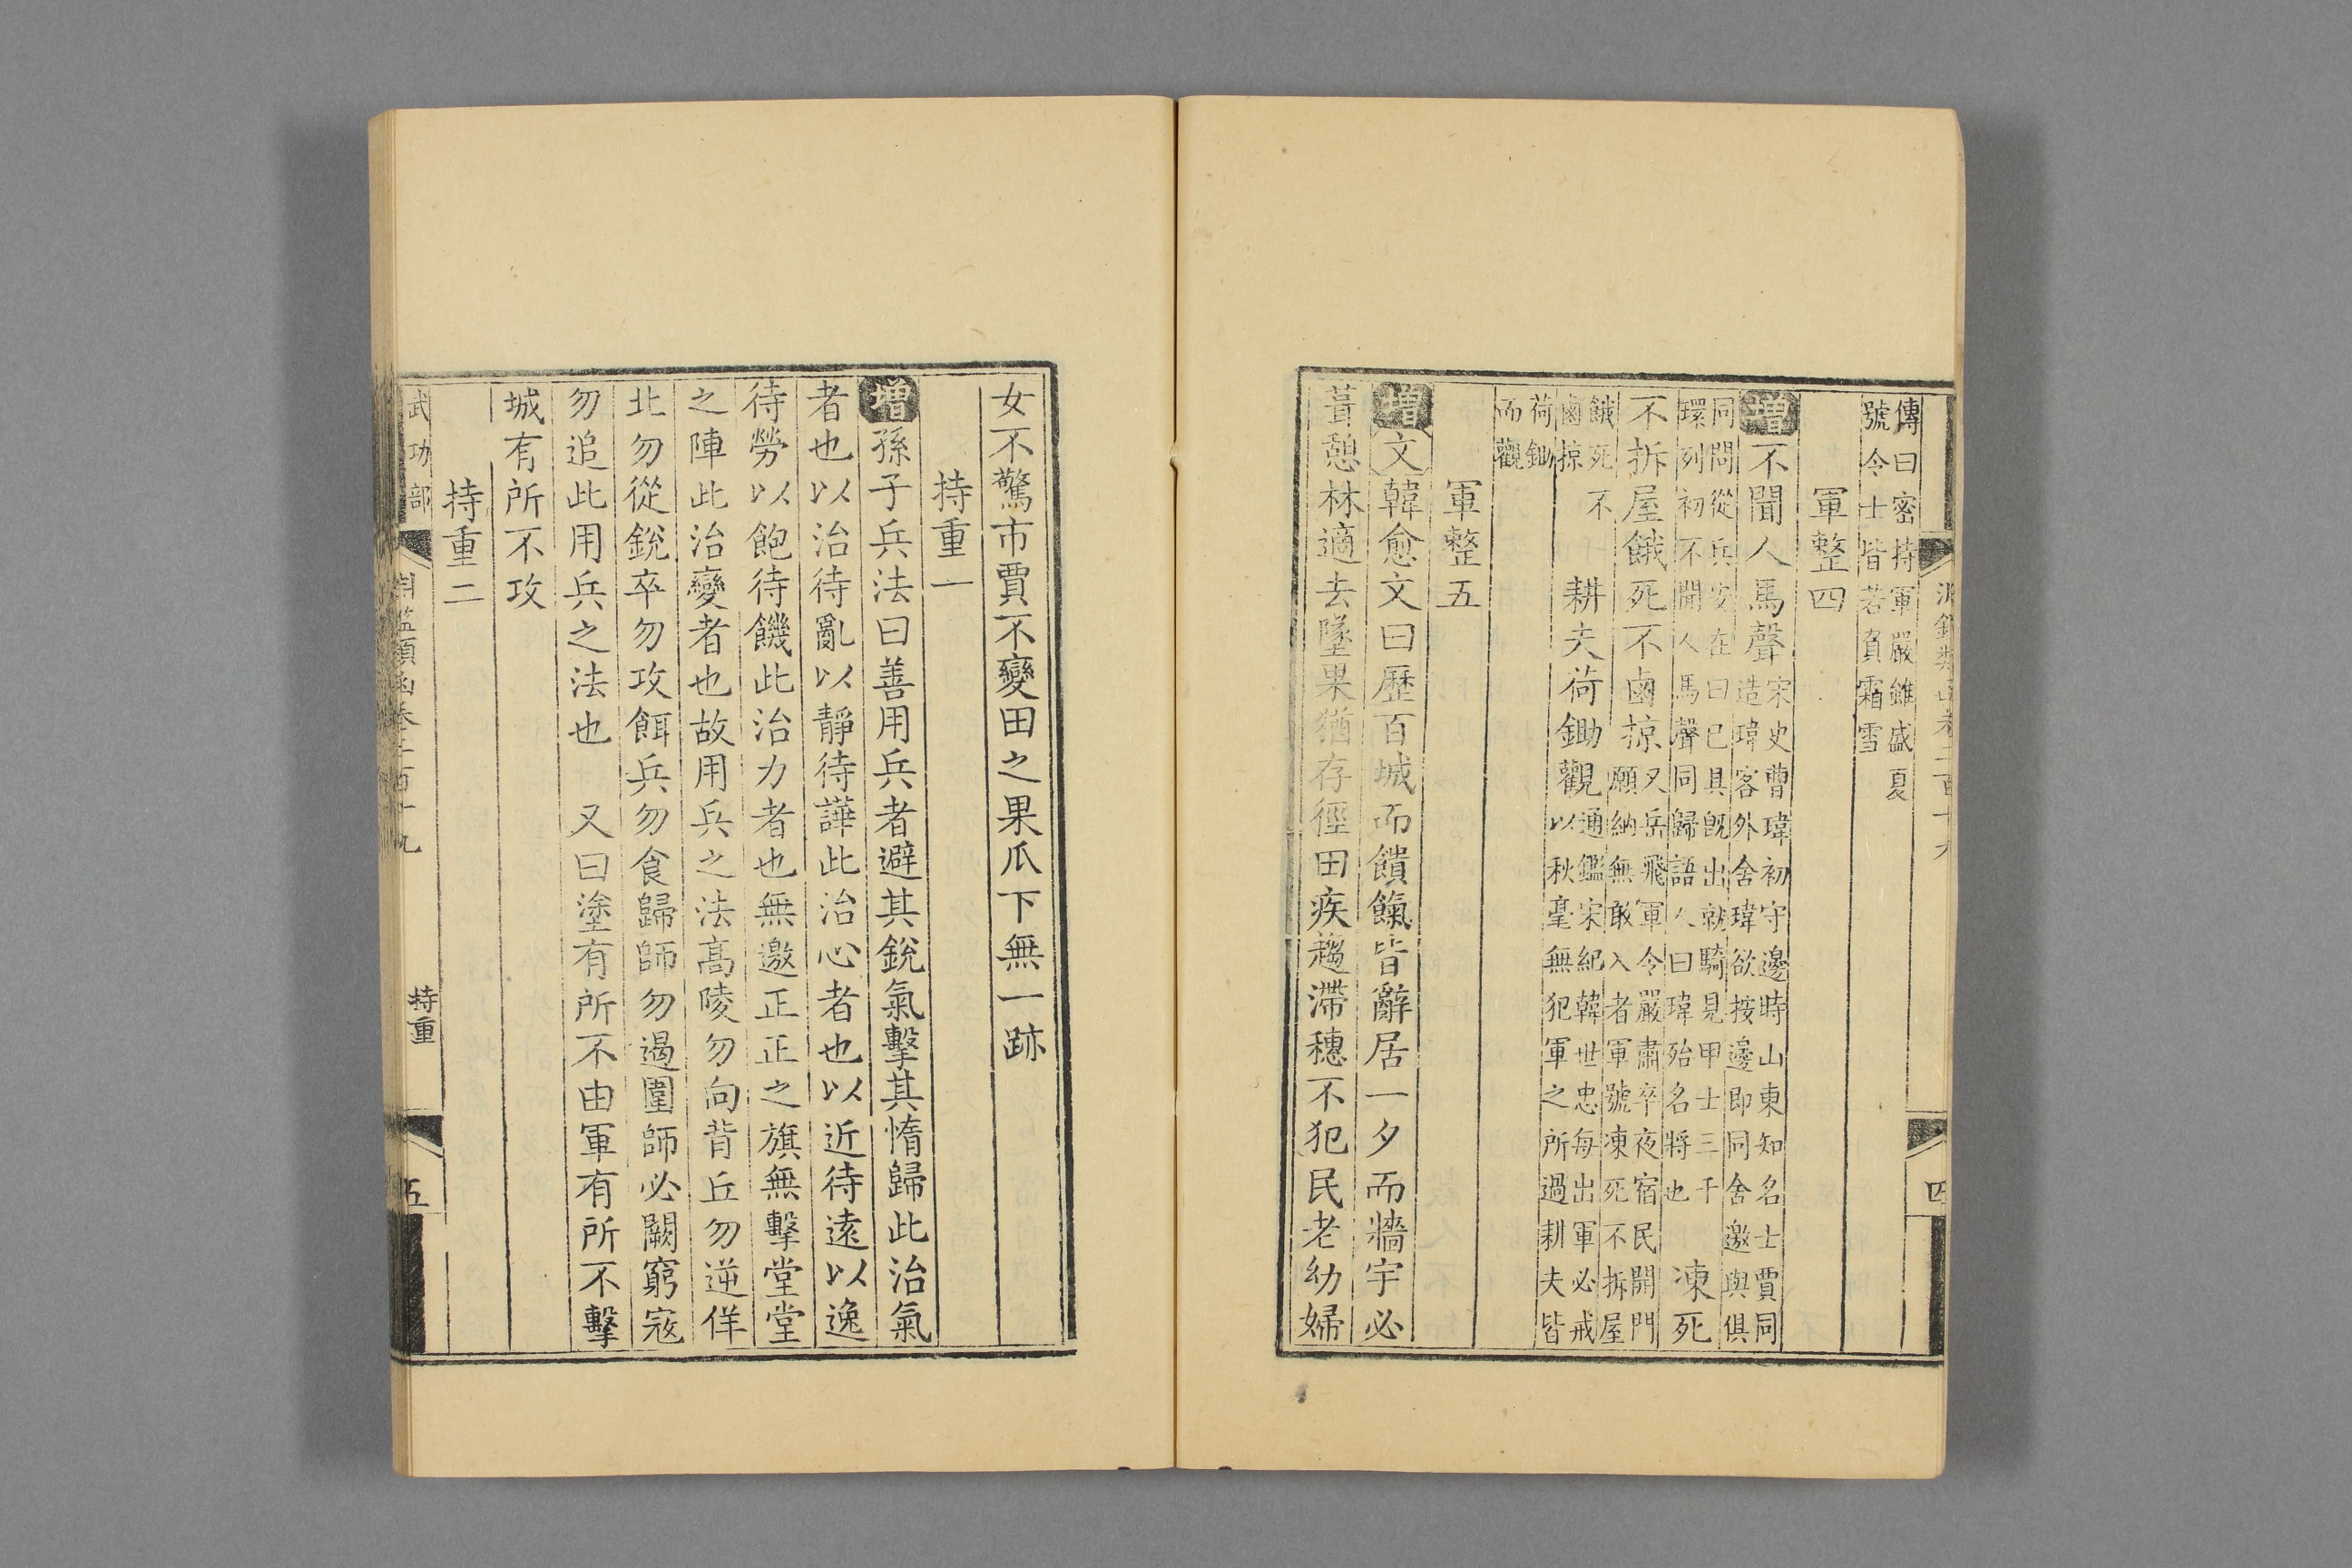 傳曰密持軍嚴雖盛夏
號令士皆若負霜雪
軍整四
增不聞人馬聲宋史曹瑋初守邊時山東知名士賈同
造瑋客外舍瑋欲按邊即同舍邀與俱
同問從兵安在曰已具旣出就騎見甲士三千
環列初不聞人馬聲同歸語人曰瑋殆名將也
凍死
不拆屋餓死不鹵掠又岳飛軍令嚴肅卒夜宿民開門
願納無敢入者軍號凍死不拆屋
餓死不
鹵掠
耕夫荷鋤觀通鑑宋紀韓世忠每出軍必戒
以秋毫無犯軍之所過耕夫皆
荷鋤
而觀
軍整五
增文韓愈文曰歷百城而饋餼皆辭居一夕而牆宇必
葺憩林適去墜果猶存徑田疾趨滯穗不犯民老幼婦
四
女不驚市賈不變田之果瓜下無一跡
持重一
增孫子兵法曰善用兵者避其銳氣擊其惰歸此治氣
者也以治待亂以靜待譁此治心者也以近待遠以逸
待勞以飽待饑此治力者也無邀正正之旗無擊堂堂
之陣此治變者也故用兵之法高陵勿向背丘勿逆佯
北勿從銳卒勿攻餌兵勿食歸師勿遏圍師必闕窮寇
勿追此用兵之法也 又曰塗有所不由軍有所不擊
城有所不攻
持重二
武功部
持重
五